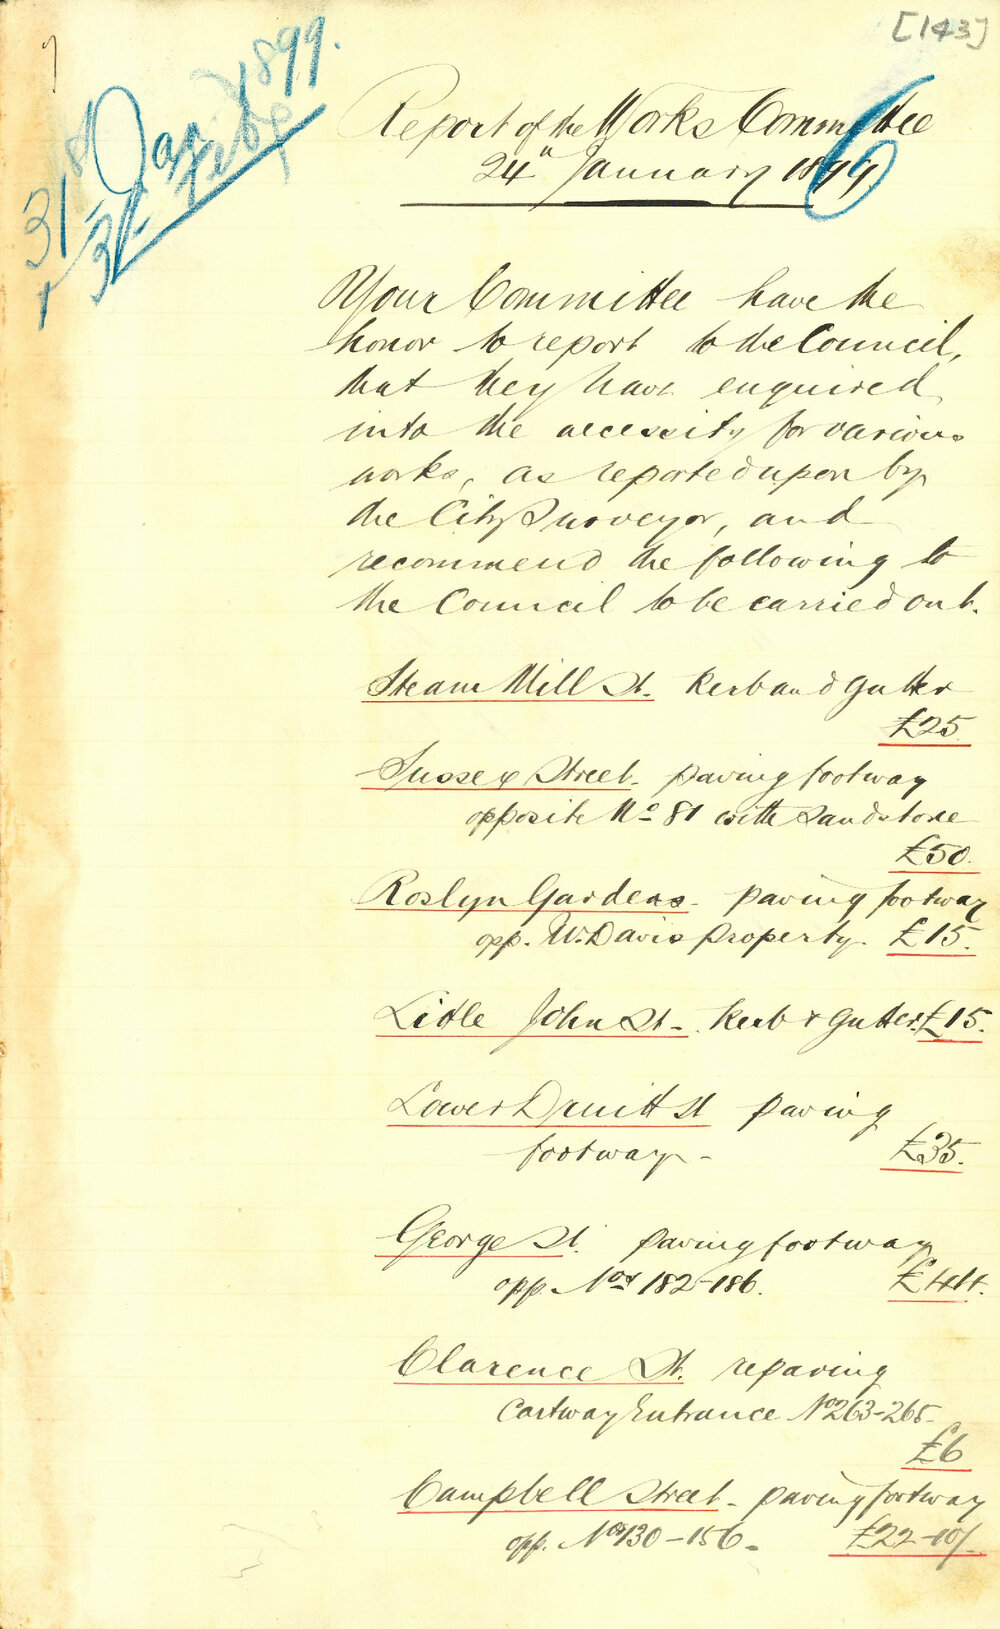 [143]
31st Jan 1899.
Feby
Report of the Works Committee
24th January 1899
6
Your Committee have the
honor to report to the Council,
that they have enquired
into the necessity for various
works, as reported upon by
the City Surveyor, and
recommend the following to
the Council to be carried out.
Steam Mill St. Kerb and Gutter
£25.
Sussex Street. paving footway
opposite No 81 with sandstone
£50.
Roslyn Gardens - paving footway
opp. W. Davis property. £15.
Little John St - Kerb & Gutter. £15.
Lower Druitt St paving
footway - £35.
George St. paving footway
opp. Nos 182-186. £44.
Clarence St. repaving
Cartway Entrance Nos 263-265-
£6
Campbell Street - paving footway
opp. Nos 130-156 - £22-10/-